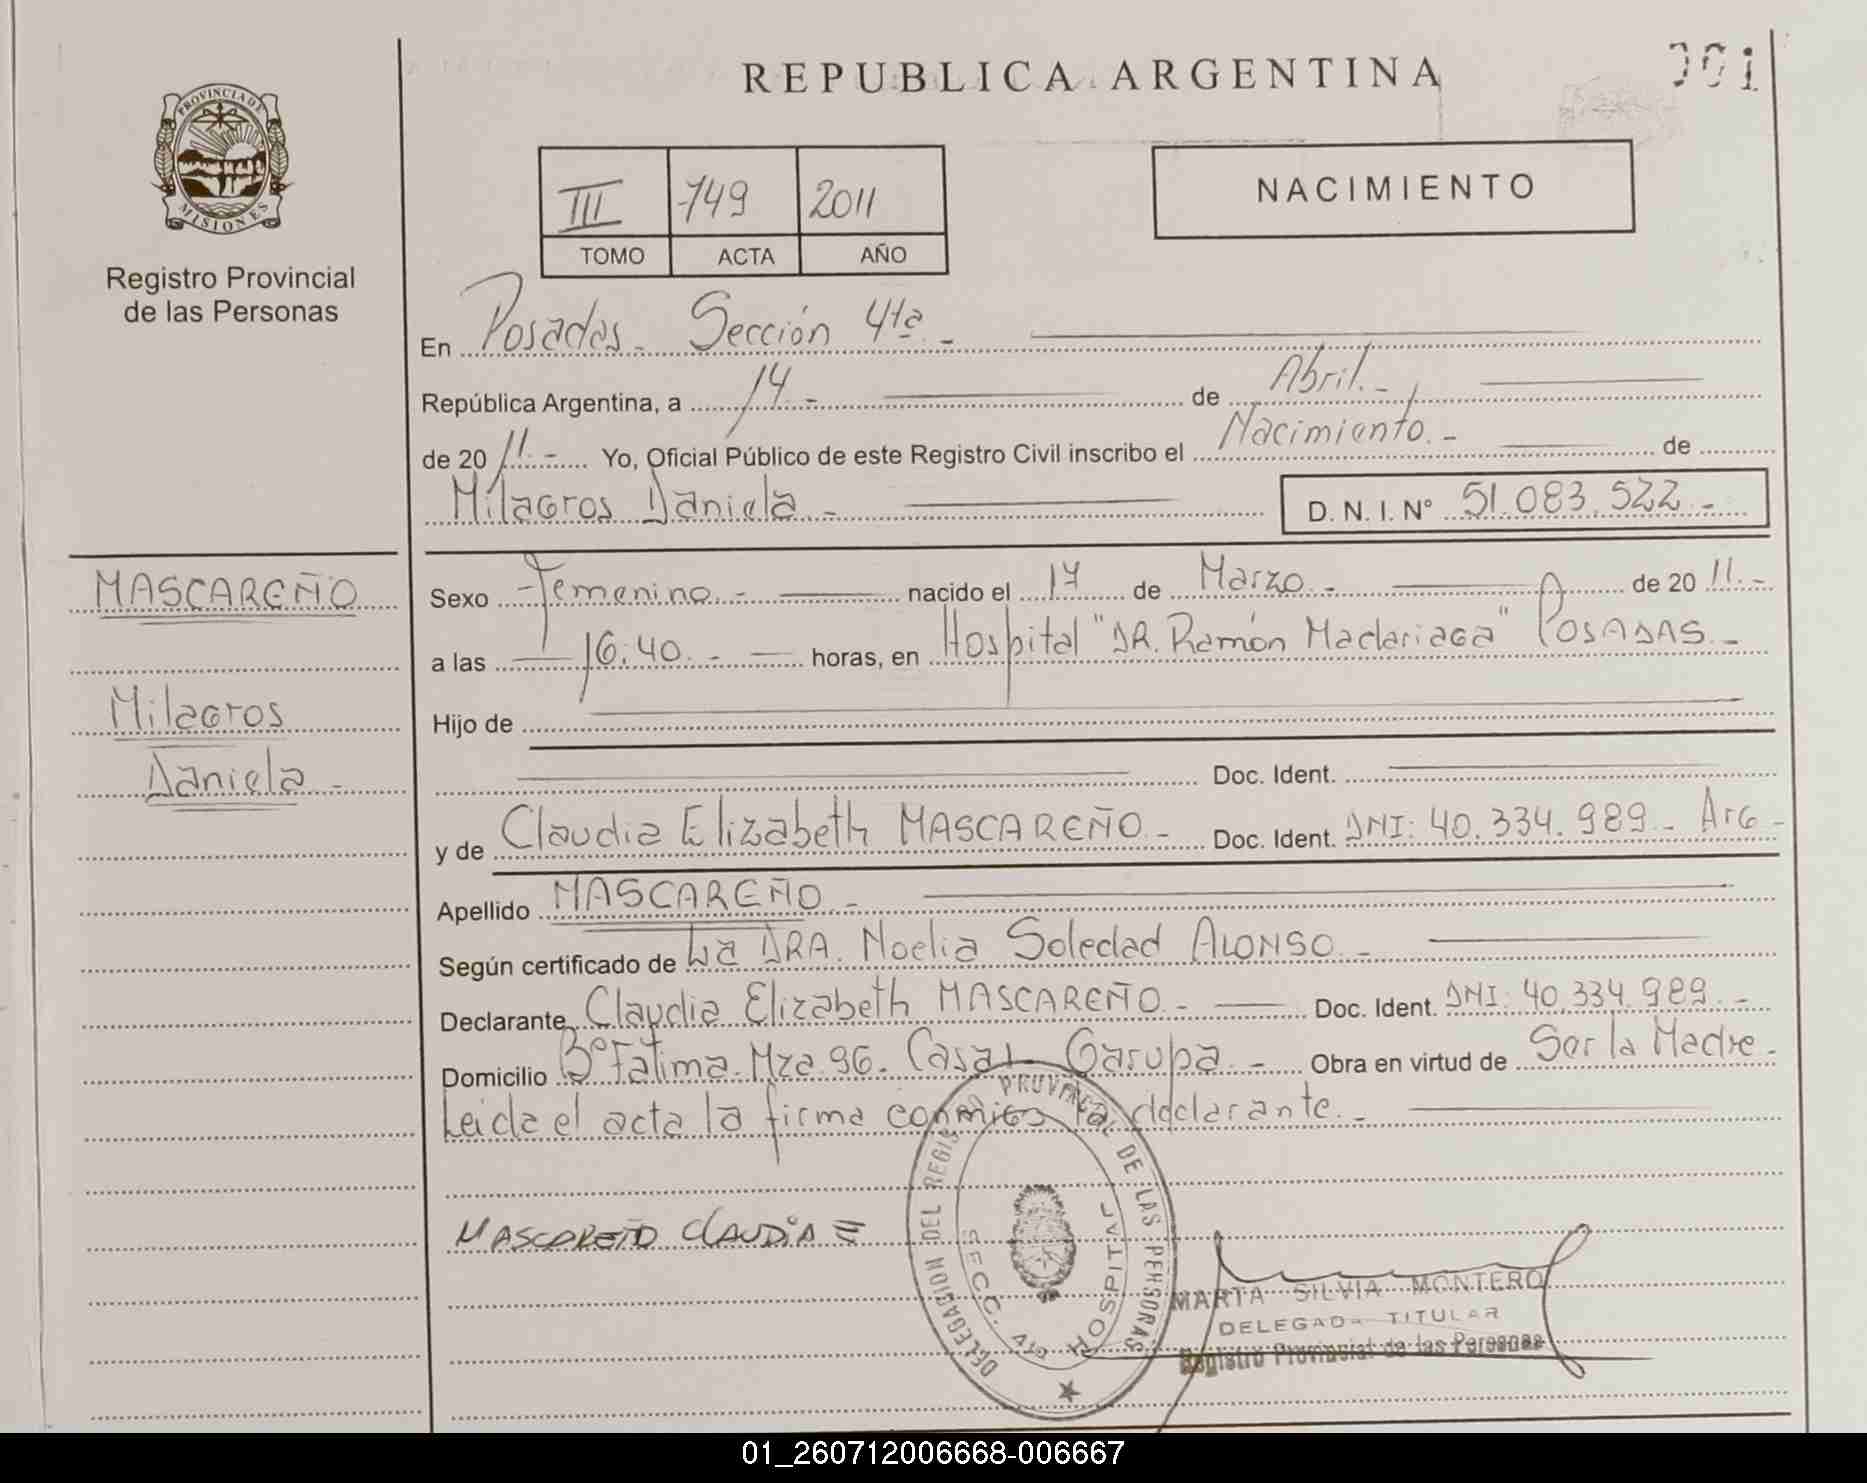 REPUBLICA ARGENTINA
001
PROVINCIA DE
MISIONES
Registro Provincial
de las Personas
III 149 2011
TOMO ACTA AÑO
NACIMIENTO
En Posadas - Sección 4ta -
República Argentina, a 14 - de Abril. -
de 20 11. - Yo, Oficial Público de este Registro Civil inscribo el Nacimiento. - de
Milagros Daniela. -
D. N. I. N° 51.083.522 -
MASCAREÑO
Milagros
Daniela -
Sexo Femenino. - nacido el 17 de Marzo. - de 20 11. -
a las 16:40. - horas, en Hospital "DR. Ramón Madariaga" POSADAS. -
Hijo de
Doc. Ident.
y de Claudia Elizabeth MASCAREÑO. - Doc. Ident. DNI: 40.334.989 - Arg -
Apellido MASCAREÑO. -
Según certificado de La DRA. Noelia Soledad ALONSO. -
Declarante Claudia Elizabeth MASCAREÑO. - Doc. Ident. DNI: 40.334.989. -
Domicilio B° Fátima. Mza. 96. Casa 1 - Garupa. - Obra en virtud de Ser la Madre. -
Leida el acta la firma conmigo la declarante. -
MASCAREÑO CLAUDIA E
DELEGACION DEL REGISTRO PROVINCIAL DE LAS PERSONAS
SECC. 4ta HOSPITAL
MARTA SILVIA MONTERO
DELEGADA TITULAR
Registro Provincial de las Personas
01_260712006668-006667